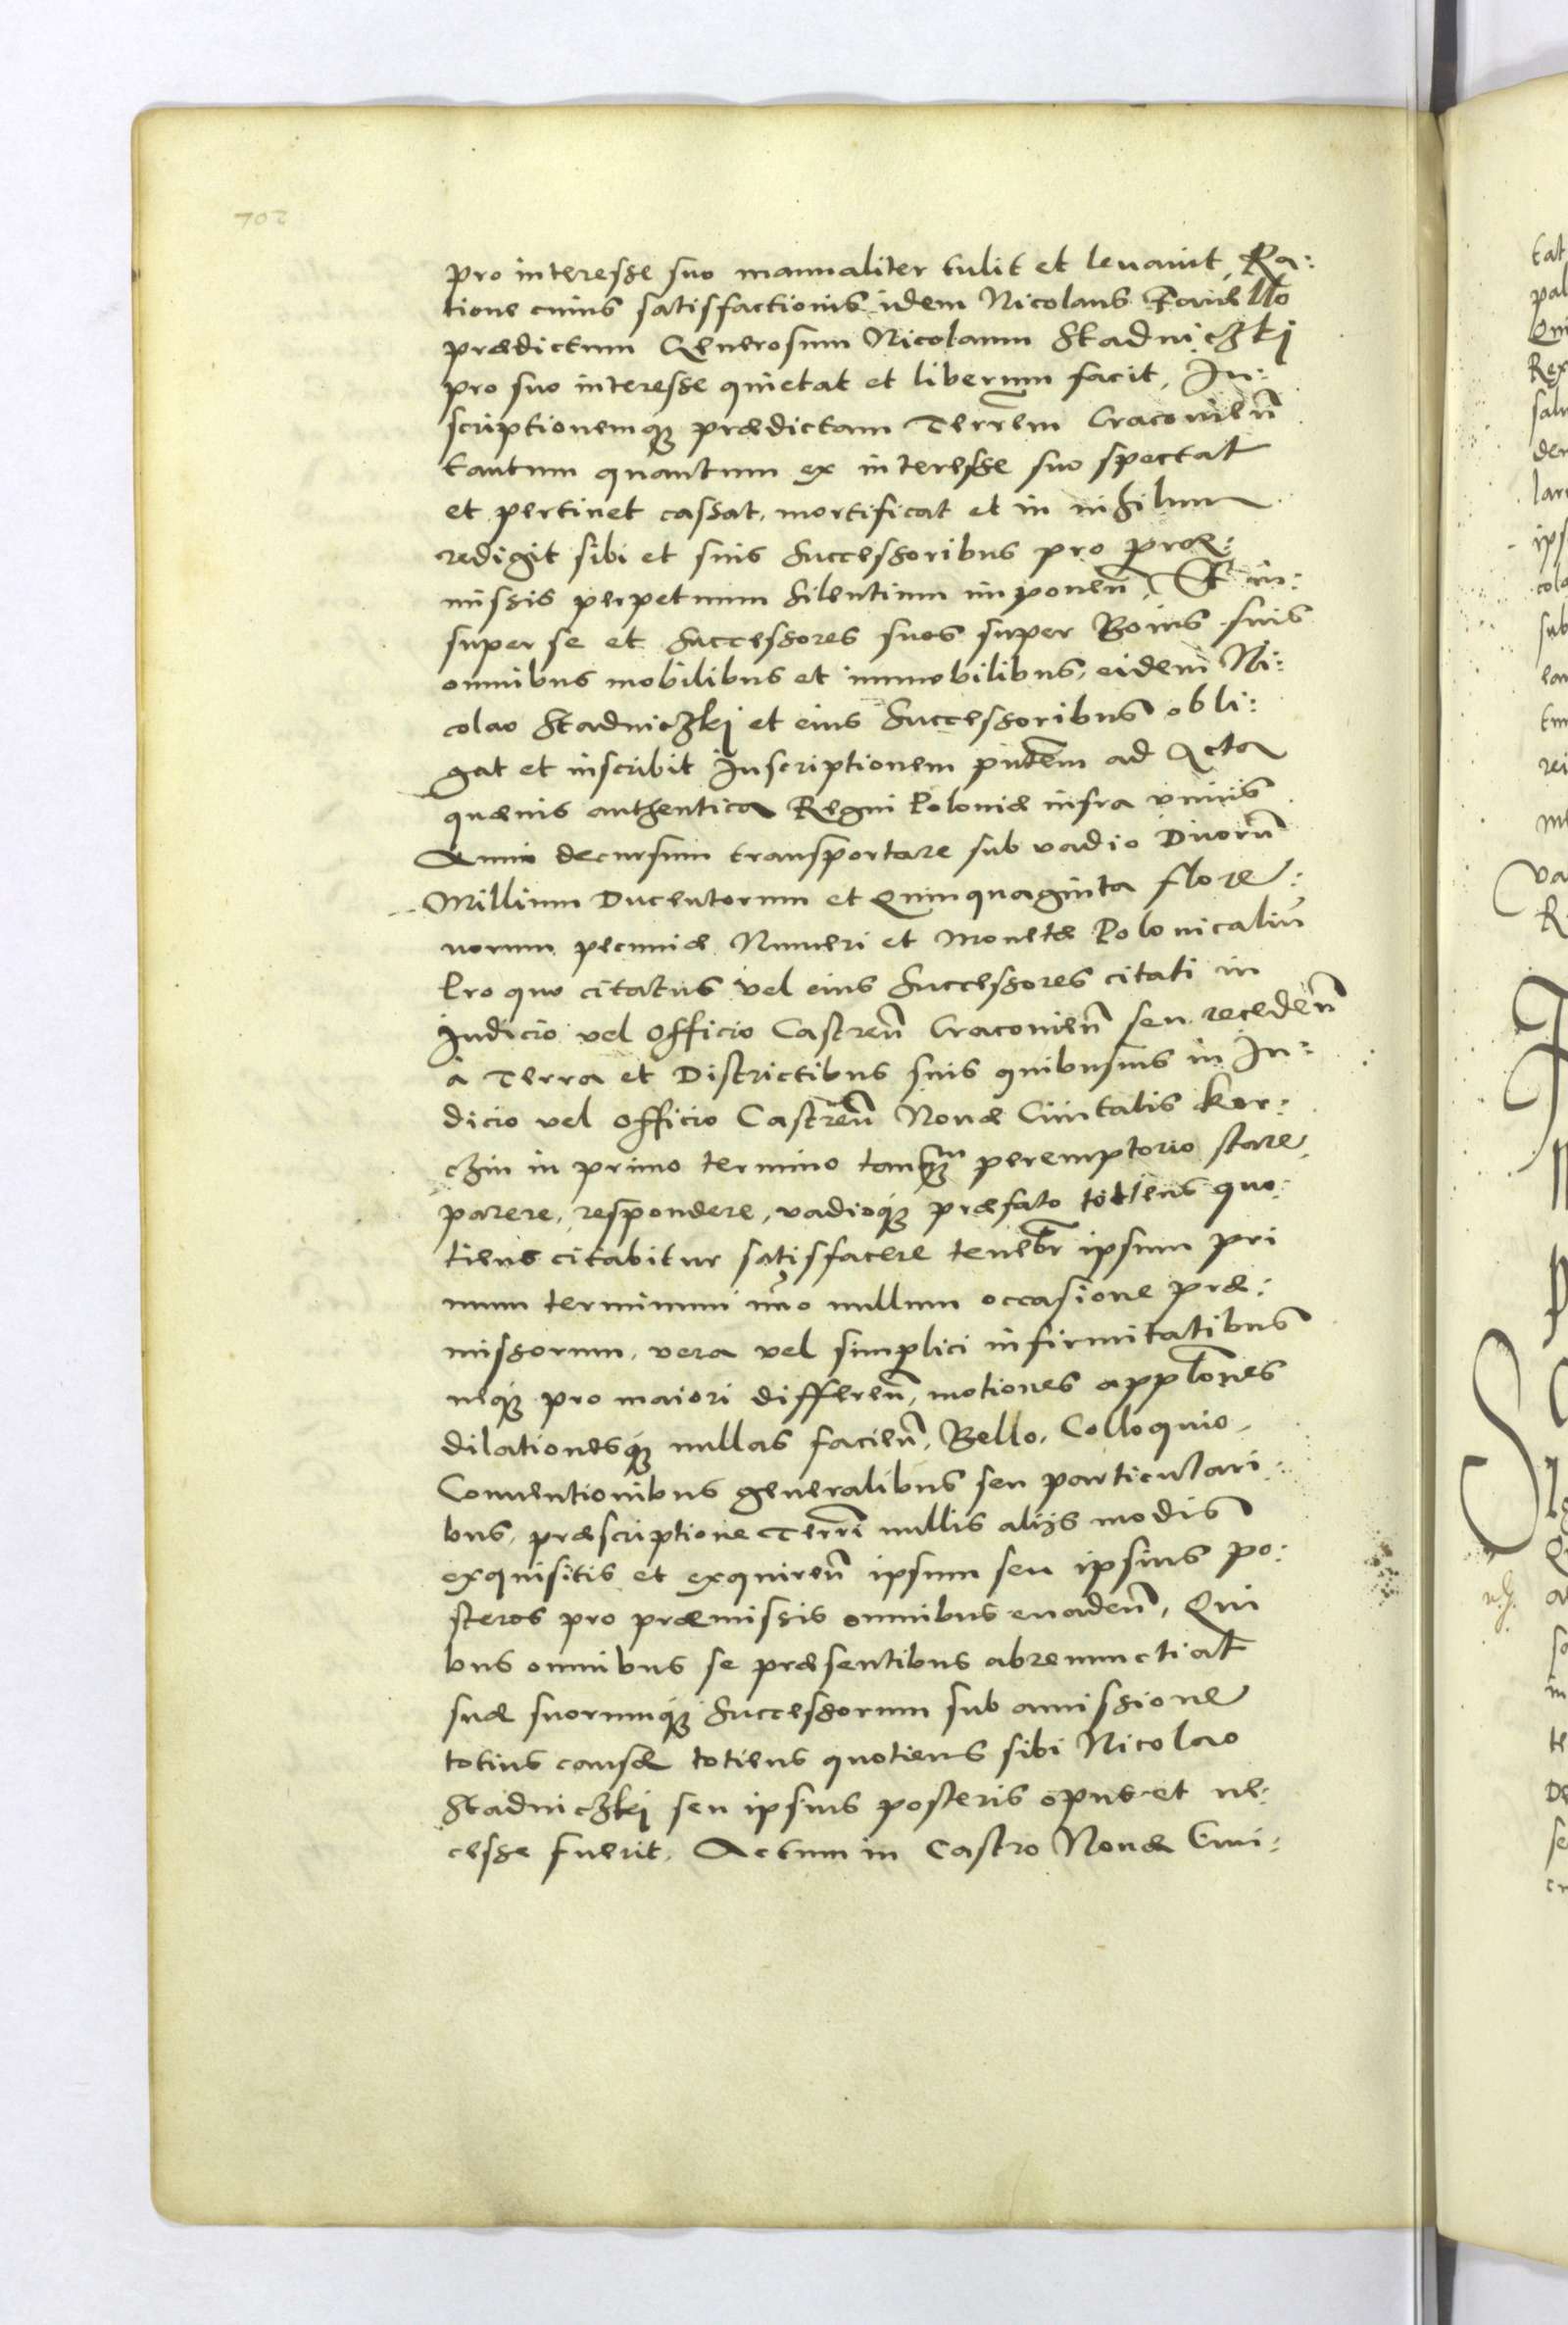 702
pro interesse suo manualiter tulit et levavit, Ra:
tione cuius satisfactionis idem Nicolaus
prædictum Generosum Nicolaum Stadniczkj
pro suo interesse quietat et liberum facit, In:
scriptionemq; prædictam Terrem̄ Cracovien̄
tantum quantum ex interesse suo spectat
et pertinet cassat, mortificat et in nihilum
redigit sibi et suis successoribus pro præ:
missis perpetuum silentium imponen̄, Et in:
super se et successores suos super Bonis suis
omnibus mobilibus et immobilibus, eidem Ni:
colao Stadniczkj et eius successoribus obli:
gat et inscribit Inscriptionem pn̄tem ad Acta
quævis authentica Regni Poloniæ infra unius
Anni decursum transportare sub vadio Duorū
Millium Ducentorum et Quinquaginta flore:
norum pecuniæ Numeri et Monetæ Polonicaliū
Pro quo citatus vel eius successores citati in
Judicio vel officio Castren̄ Cracovien̄ seu receden̄
à Terra et Districtibus suis quibusvis in Ju:
dicio vel officio Castren̄ Novæ Civitalis Kor:
czin in primo termino tanq̃ peremptorio stare,
parere, respondere, vadioq; præfato totiens quo:
tiens citabitur satisfacere tenebr̄ ipsum pri
mum terminum im̄o nullum occasione præ:
missorum, vera vel simplici infirmitatibus
neq; pro maiori differen̄, motiones appl̄ones
dilationesq; nullas facien̄, Bello, Colloquio,
Conventionibus generalibus seu particulari:
bus, præscriptione Terrī nullis alijs modis
exquisitis et exquiren̄ ipsum seu ipsius po:
steros pro præmissis omnibus evaden̄, Qui
bus omnibus se præsentibus abrenunctiat
suæ suorumq; successorum sub amissione
totius causæ totiens quotiens sibi Nicolao
Stadniczkj seu ipsius posteris opus et ne:
cesse fuerit. Actum in Castro Novæ Civi: